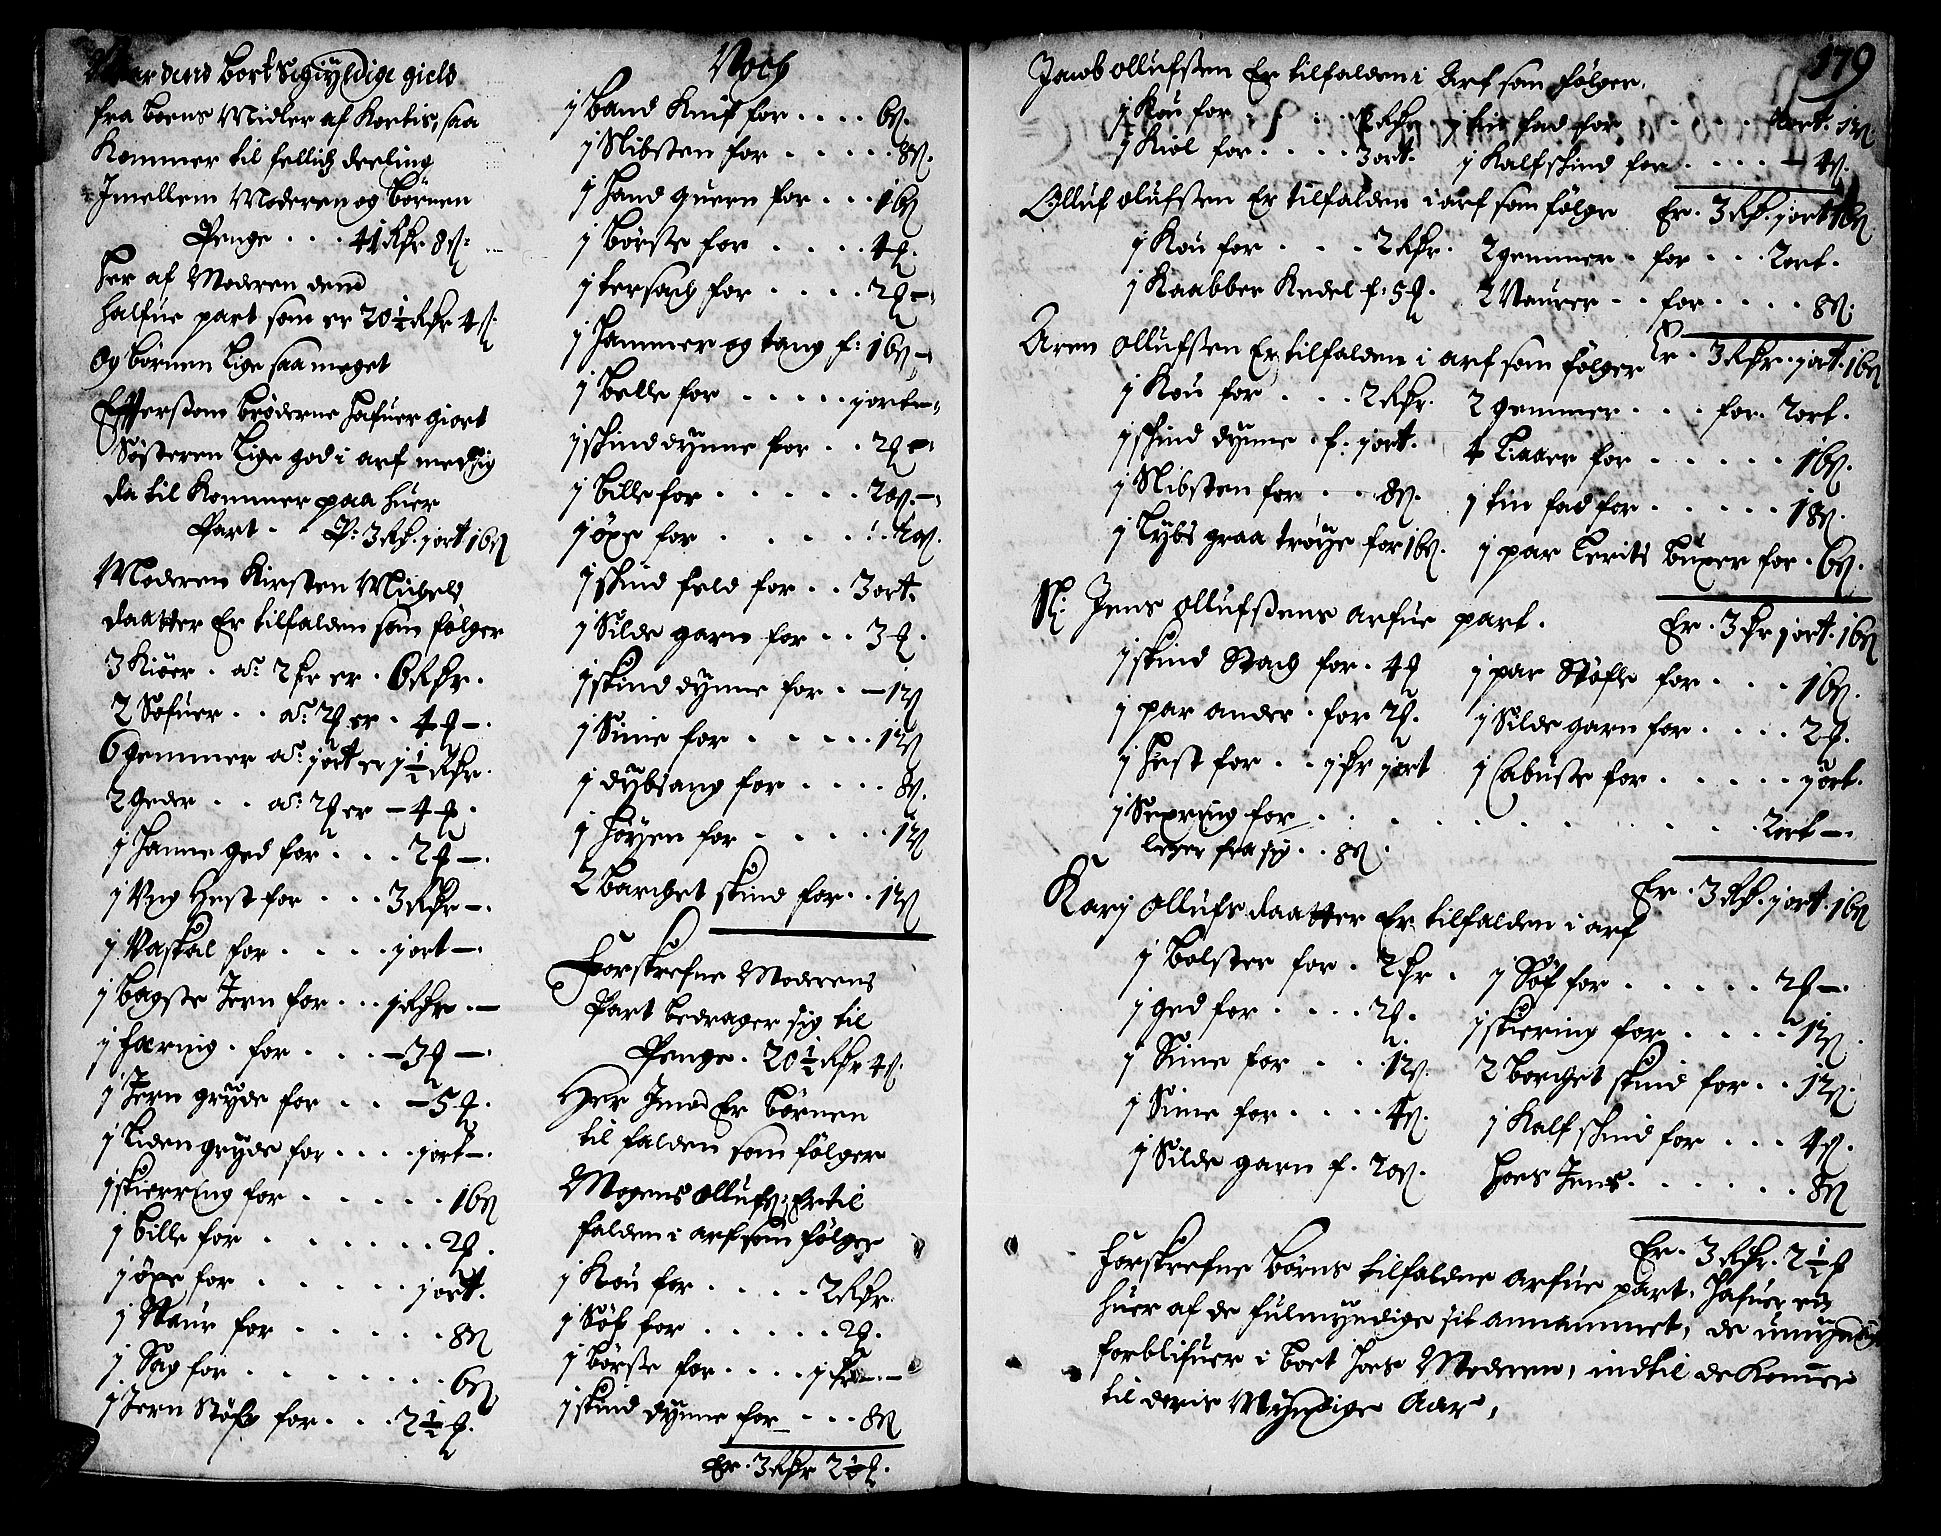 dend bort Schyldige gield
fra boens Midler af Kortis, saa
Kommer til fellig deeling
Jmellem Moderen og börnen
Penge . . . 41 Rdr 8 ß.
Her af Moderen dend
halfue part som er 20½ Rdr 4 ß.
Og börnen Lige saa meget
Effterssom bröderne hafuer giort
Söskeren Lige god i arf med sig
da til Kommer paa huer
Part . . P: 3 Rdr. j ort 16 ß
Moderen Kirsten Michels
daatter Er tilfalden som følger
3 Kiöer . a. 2 dr er . 6 Rdr.
2 Söfuer . . a. 2 ₰ er . 4 ₰ –.
6 gemmer a. j ort er j½ Rdr.
2 geder . . a. 2 ₰ er – 4 ₰.
j hanne ged for . . . 2 ₰ –.
j Vng Hest for . . . 3 Rdr –.
j Vaskal for . . . . j ort –.
j bagste Jern for . . . j Rdr . –
j færing . for . . . – 3 ₰ –.
j Jern gryde for . . – 5 ₰.
j Liden gryde for . . . . j ort –.
j skierring for . . . . . . 16 ß
j bille for . . . . . . 2 ₰.
j öxe for . . . . . . j ort.
j Naur for . . . . . . 8 ß
j Sag for . . . . . . . 6 ß
j Jern Stöfr for . . . 2½ ₰.
Noch
j band Knif for . . . . 6 ß.
j Slibsten for . . . . . 8 ß.
j hand quern for . . . 16 ß
j börsse for . . . . . 4 ₰.
j tersach for . . . . 2 ₰ –.
j hammer og tang f: 16 ß –.
j belle for . . . . . j ort –.
j skind dynne for . . 2 ₰ –.
j bille for . . . . . 20 ß. –.
j öxe for . . . . . . 20 ß.
j skind feld for . . 3 ort.
j Silde garn for . . 3 ₰.
j skind dynne for . – 12 ß
j Sime for . . . . . 12 ß
j dybsang for . . . . 8 ß.
j höyen for . . . . . 12 ß
2 barchet skind for . . 12 ß
Forskrefne Moderens
Part bedrager sig til
Penge . 20½ Rdr 4 ß.
Her Jmod Er börnen
til falden som følger
Mogens Ollufs: Er til
falden i arf som følger
j Kou for . . . . 2 Rdr
j Söf for . . . . . 2 ₰.
j börsse for . . . . j dr –.–
j skind dynne for – . . . 8 ß
Er . 3 Rdr 2½ ₰.
179
Jacob Ollufssen Er tilfalden i Arf som følger.
j Kou for . . . . 2 Rdr. j tin fad for . . . . . ort. 12 ß.
j Kiol for . . . . 3 ort. j Kalfskind for . . . . – 4 ß.
Er . 3 Rdr. j ort 16 ß
Olluf Olufssen Er tilfalden i arf som følge
j Kou for . . . . 2 Rdr. 2 gemmer . for . . . 2 ort.
j Kaabber Kedel f: 5 ₰. 2 Naurer . . for . . . . 8 ß.
Er . 3 Rdr. j ort. 16 ß
Aren Ollufssen Er tilfalden i arf som følger
j Kou for . . . 2 Rdr. 2 gemmer . . . for . 2 ort.
j skind dynne . f: j ort. 4 Liaaer for . . . . . 16 ß.
j Slibsten for . . 8 ß. j tin fad for . . . . . 18 ß.
j Lybs graa tröye for 16 ß. j par Lerits buxer for . 6 ß.
Er . 3 dr j ort . 16 ß
Sl: Jens Ollufssens arfue part.
j skind Stach for . 4 ₰ j par Stöfle for . . . 16 ß.
j par ander . for 2 ₰. j Silde garn for . . . . 2 ₰.
j Hest for . . j dr j ort j Cabusse for . . . . . j ort.
j Sexring for . . . . . . . . . 2 ort –.
leger fra sig . . 8 ß.
Er . 3 Rdr. j ort. 16 ß
Karj Ollufs daatter Er tilfalden i arf
j bolster for . 2 dr . j Söf for . . . . . 2 ₰ –.
j ged for . . . . 2 ₰. j skiering for . . . . . 12 ß.
j Sime for . . . 12 ß. 2 borchet skind for . . 12 ß.
j Sime for . . . . 4 ß. j Kalf skind for . . . 4 ß.
j Silde garn f. 20 ß. hoes Jens . . . . . . 8 ß
Er . 3 Rdr. 2½ ₰
Forskrefne börns tilfaldne arfue part. hafuer en
huer af de fulmyndige sit annammet, de umyndige
forblifuer i boet hoes Moderen, indtil de Kommer
til deris Myndige Aar,